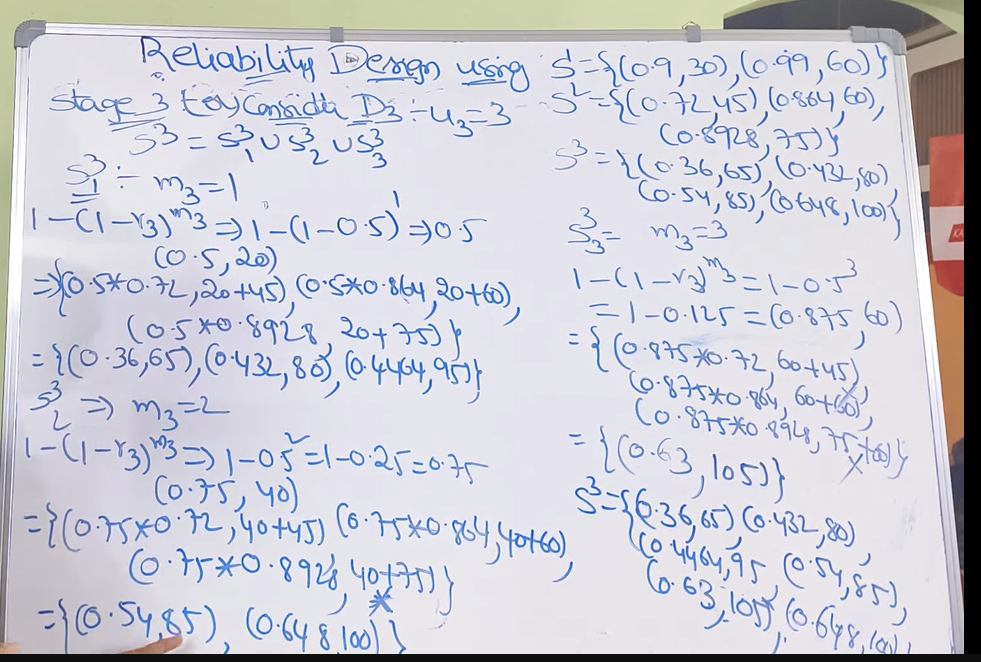 Reliability Design using
Stage 3 for Consider D3 :- u3=3
S³ = S³₁ ∪ S³₂ ∪ S³₃
S³₁ :- m3=1
1-(1-r3)^m3 ⇒ 1-(1-0.5)¹ ⇒ 0.5
(0.5, 20)
⇒ {(0.5*0.72, 20+45), (0.5*0.864, 20+60),
(0.5*0.8928, 20+75)}
= {(0.36,65), (0.432,80), (0.4464,95)}
S³₂ ⇒ m3=2
1-(1-r3)^m3 ⇒ 1-0.5² = 1-0.25 = 0.75
(0.75, 40)
= {(0.75*0.72, 40+45) (0.75*0.864, 40+60),
(0.75*0.8928, 40+75)}
= {(0.54,85), (0.648,100)}
S¹ = {(0.9,30), (0.99,60)}
S² = {(0.72,45), (0.864,60),
(0.8928,75)}
S³ = {(0.36,65), (0.432,80),
(0.54,85), (0.648,100)}
S³₃ = m3=3
1-(1-r3)^m3 = 1-0.5³
= 1-0.125 = (0.875,60)
= {(0.875*0.72, 60+45),
(0.875*0.864, 60+60),
(0.875*0.8928, 75+60)}
= {(0.63,105)}
S³ = {(0.36,65) (0.432,80),
(0.4464,95, (0.54,85),
(0.63,105), (0.648,100),